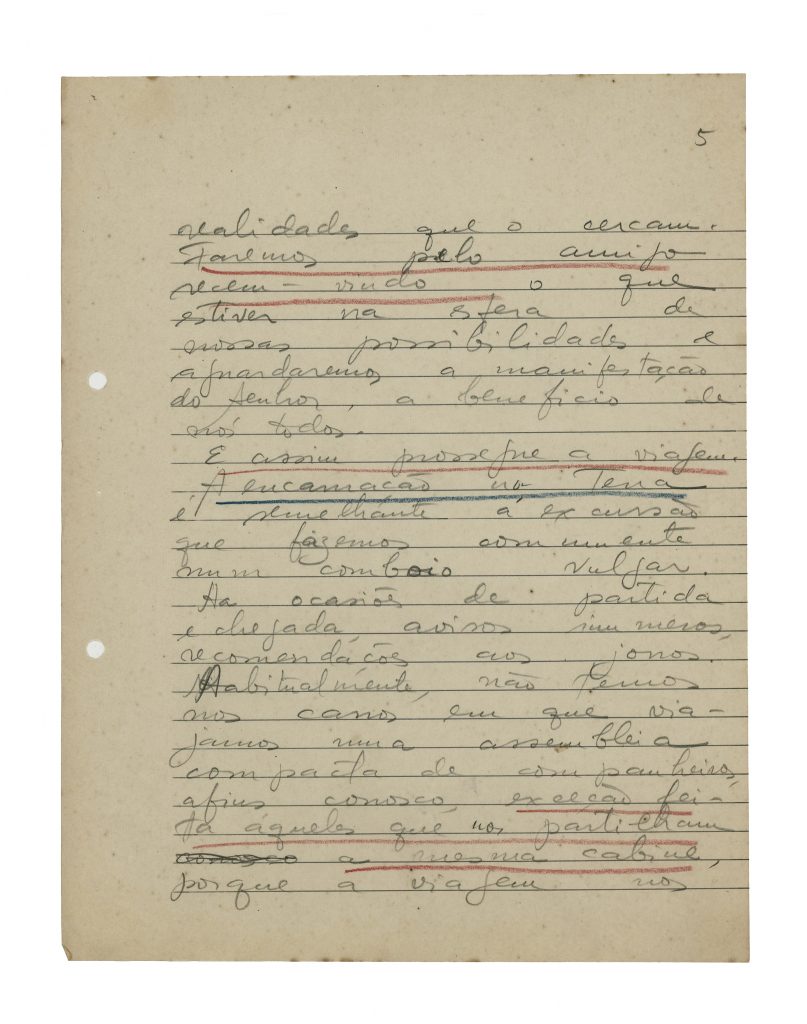 5
realidades que o cercam.
Faremos pelo amigo
recem-vindo o que
estiver na esfera de
nossas possibilidades e
aguardaremos a manifestação
do Senhor, a beneficio de
nós todos.
E assim prossegue a viagem.
A encarnação na Terra
é semelhante á excursão
que fazemos commumente
num comboio vulgar.
Ha ocasiões de partida
e chegada, avisos innumeros,
recomendações aos
Habitualmente, não temos
nos carros em que via-
jamos uma assembleia
compacta de companheiros,
afins conosco, exceção fei-
ta áqueles que nos partilham
a mesma cabine,
porque a viagem nos